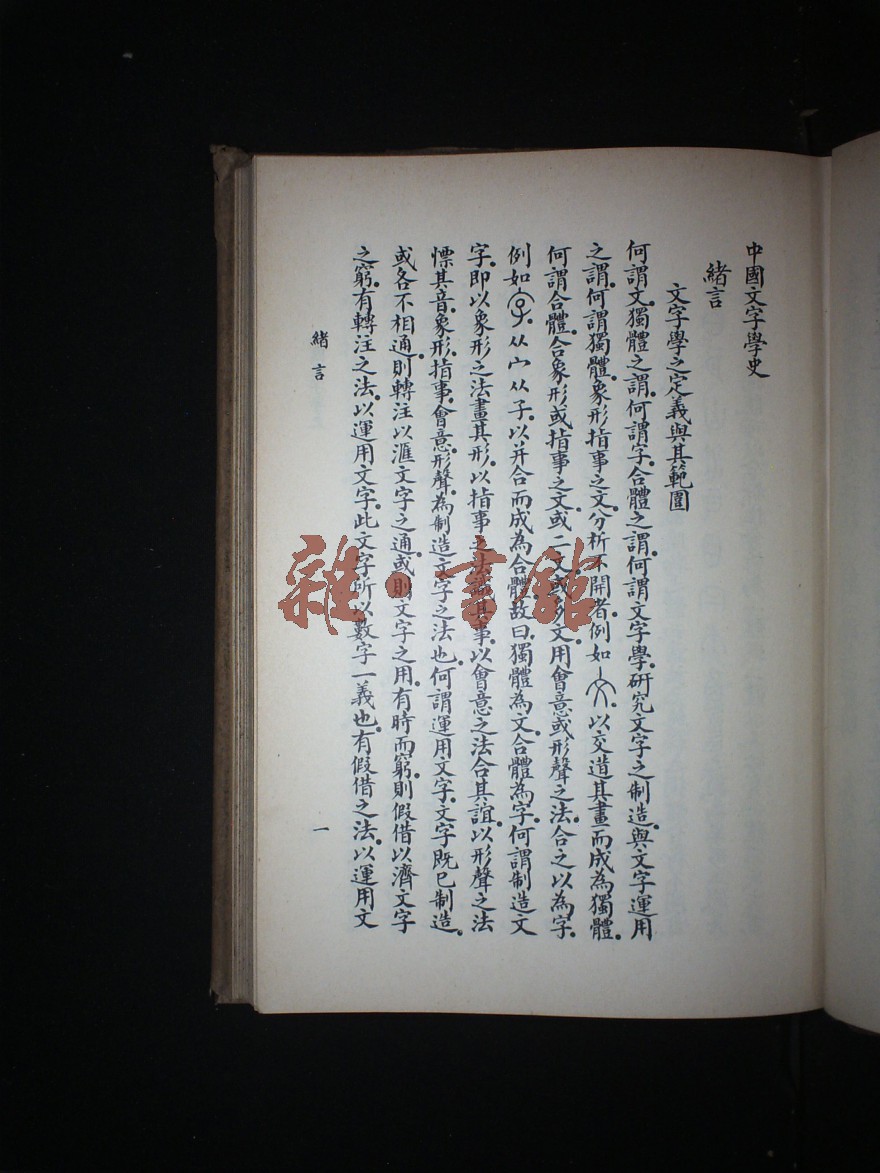 中國文字學史
緒言
文字學之定義與其範圍
何謂文。獨體之謂。何謂字。合體之謂。何謂文字學。研究文字之制造。與文字運用
之謂。何謂獨體。象形指事之文。分析不開者。例如 。以交道其畫而成為獨體。
何謂合體。合象形或指事之文。或二文或多文。用會意或形聲之法。合之以為字。
例如 。从宀从子。以并合而成為合體。故曰。獨體為文。合體為字。何謂制造文
字。即以象形之法畫其形。以指事之法識其事。以會意之法合其誼。以形聲之法
慓其音。象形。指事。會意。形聲。為制造文字之法也。何謂運用文字。文字既已制造。
或各不相通。則轉注以滙文字之通。或則文字之用。有時而窮。則假借以濟文字
之窮。有轉注之法。以運用文字。此文字所以數字一義也。有假借之法。以運用文
緒言
一
雜·書館